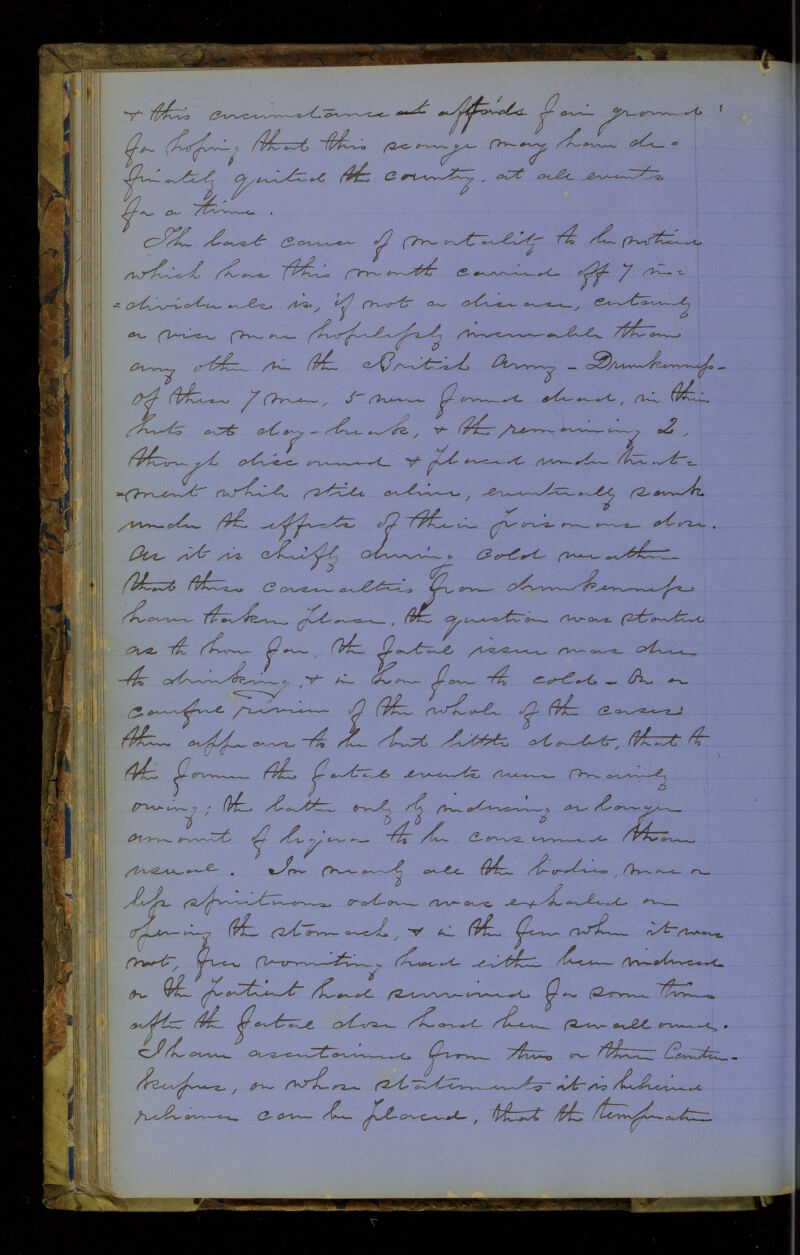 & this circumstance at affords fair ground
for hoping that this scourge may have de=
finately quited the country. at all events
for a time.
The last cause of mortality to be noticed
which has this month carried off 7 in=
=dividuals is, if not a disease, certainly
a vice more hopelessly incurable than
any other in the British Army - Drunkenness -
Of these 7 men, 5 were found dead, in their
huts at day-break, & the remaining 2,
though discovered & placed under treat=
=ment while still alive, eventually sank
under the effects of their poisonous dose.
As it is chiefly during cold weather
that these casualties from drunkenness
have taken place, the question was started
as to how far, the fatal issue was due
to drinking, & in how far to cold - On a
careful review of the whole of the cases
there appears to be but little doubt, that to
the former the fatal events were mainly
owing; the latter only by inducing a larger
amount of liquor to be consumed than
usual. In nearly all the bodies, more or
less spirituous odour was exhaled on
opening the stomach, & in the few where it was
not, free vomiting had either been induced
or the patient had survived for some time
after the fatal dose had been swallowed.
I have ascertained from two or three Canteen-
keepers, on whose statements it is believed
reliance can be placed, that the temperature